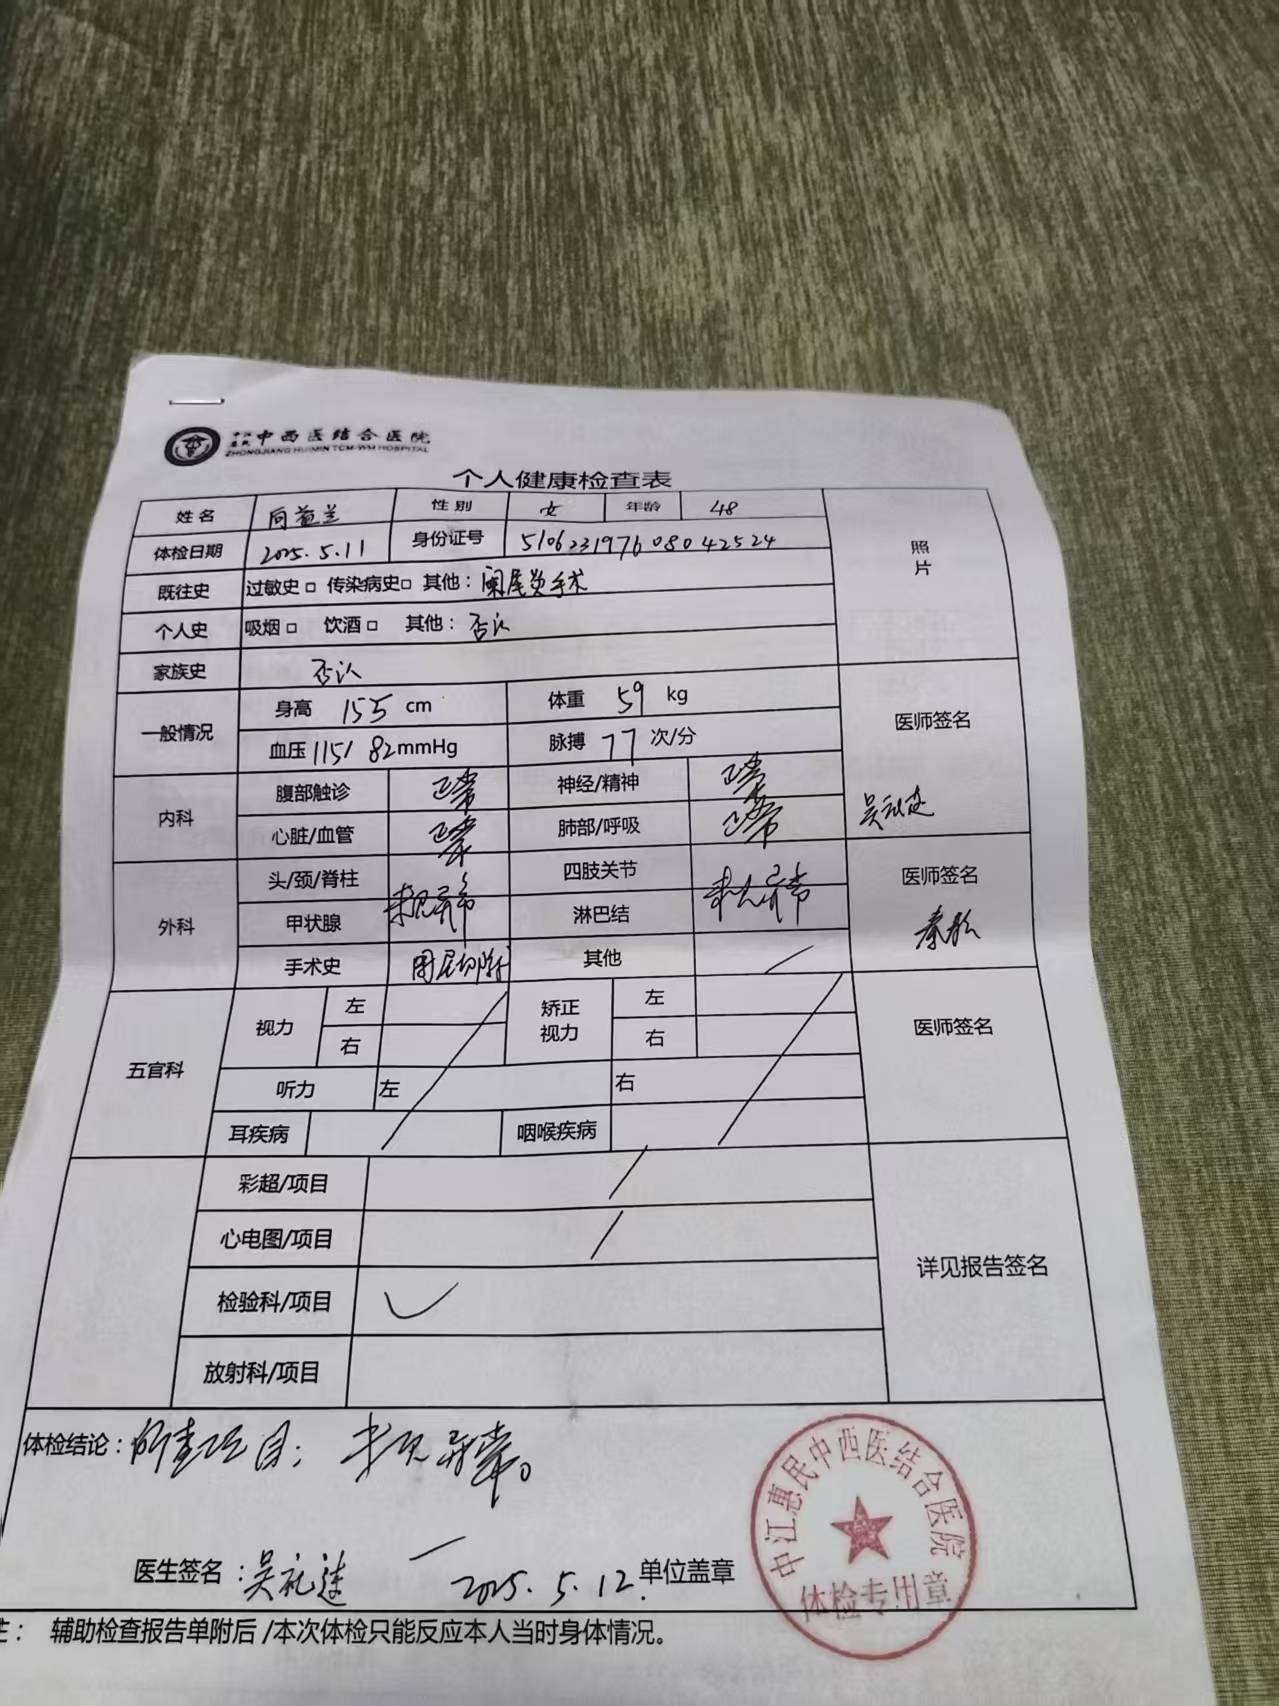 中江惠民 中西医结合医院
ZHONGJIANG HUIMIN TCM-WM HOSPITAL
个人健康检查表
姓名 向益兰 性别 女 年龄 48
照片
体检日期 2025.5.11 身份证号 510623197608042524
既往史 过敏史□ 传染病史□ 其他：阑尾炎手术
个人史 吸烟□ 饮酒□ 其他：否认
家族史 否认
一般情况 身高 155 cm 体重 59 kg
血压 115/82mmHg 脉搏 77 次/分
医师签名
内科 腹部触诊 正常 神经/精神 正常
心脏/血管 正常 肺部/呼吸 正常
吴礼连
外科 头/颈/脊柱 四肢关节
医师签名
甲状腺 未见异常 淋巴结 未见异常
手术史 阑尾切除术 其他 /
五官科 视力 左 矫正视力 左
右 右
医师签名
听力 左 右
耳疾病 咽喉疾病
彩超/项目 /
心电图/项目 /
检验科/项目 ✓
放射科/项目
详见报告签名
体检结论：所查项目：未见异常。
医生签名：吴礼连 2025.5.12. 单位盖章
中江惠民中西医结合医院
体检专用章
注： 辅助检查报告单附后/本次体检只能反应本人当时身体情况。